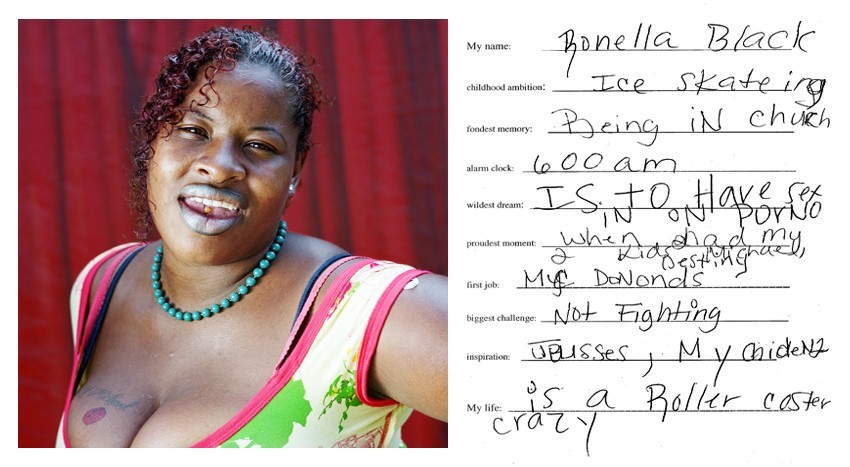 My name: Ronella Black
childhood ambition: Ice skateing
fondest memory: Being iN chuch
alarm clock: 6 00 am
wildest dream: IS to Have sex
IN ON PORNO
proudest moment: when I had my
2 kids
first job: Mc DoNonds
biggest challenge: Not Fighting
inspiration: My
My life: is a Roller coster
crazy